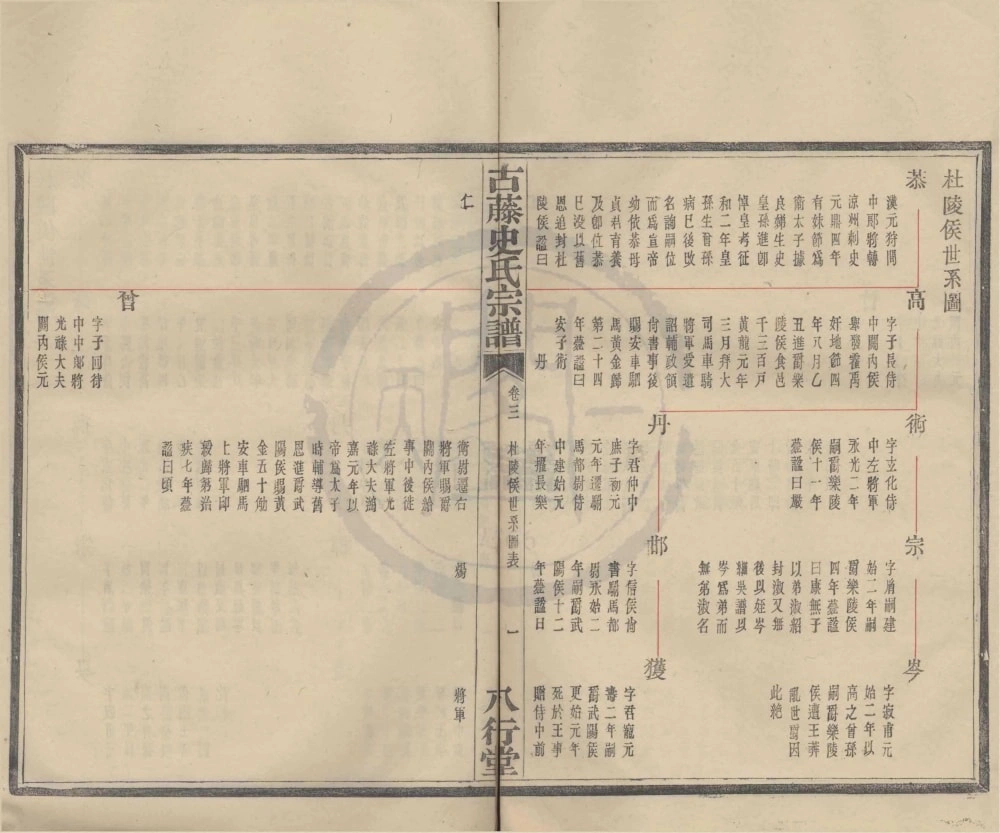 杜陵侯世系圖
恭
漢元狩間
中郎將轉
涼州刺史
元鼎四年
有妹節爲
衛太子據
良娣生史
皇孫進卽
悼皇考征
和二年皇
孫生曾孫
病已後改
名詢嗣位
而爲宣帝
幼依恭母
貞君育養
及卽位恭
已沒以舊
恩追封杜
陵侯諡曰
仁
高
字子長侍
中關內侯
舉發霍禹
奸地節四
年八月乙
丑進爵樂
陵侯食邑
千三百戸
黃龍元年
三月拜大
司馬車騎
將軍受遺
詔輔政領
尙書事後
賜安車駟
馬黃金歸
第二十四
年薨諡曰
安子術
丹
曾
字子回待
中中郎將
光祿大夫
關內侯元
術
字玄化侍
中左將軍
永光二年
嗣爵樂陵
侯十一年
薨諡曰嚴
丹
字君仲中
庶子初元
元年遷駙
馬都尉侍
中建始元
年擢長樂
衛尉遷右
將軍賜爵
關內侯給
事中後徙
左將軍光
祿大夫鴻
嘉元年以
帝爲太子
時輔導舊
恩進爵武
陽侯賜黃
金五十觔
安車駟馬
上將軍印
綬歸第治
疾七年薨
諡曰頃
宗
字屑嗣建
始二年嗣
爵樂陵侯
四年薨諡
曰康無子
以弟淑紹
封淑又無
後以姪岑
繼吳譜以
岑爲弟而
無弟淑名
邯
字信侯尙
書駙馬都
尉永始二
年嗣爵武
陽侯十二
年薨諡曰
煬
岑
字寂甫元
始二年以
高之曾孫
嗣爵樂陵
侯遭王莽
亂世爵因
此絶
獲
字君寵元
壽二年嗣
爵武陽侯
更始元年
死於王事
贈侍中前
將軍
古藤史氏宗譜
卷三
杜陵侯世系圖表
一
八行堂